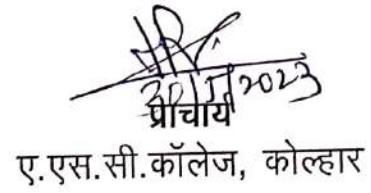 प्राचार्य
ए.एस.सी.कॉलेज, कोल्हार